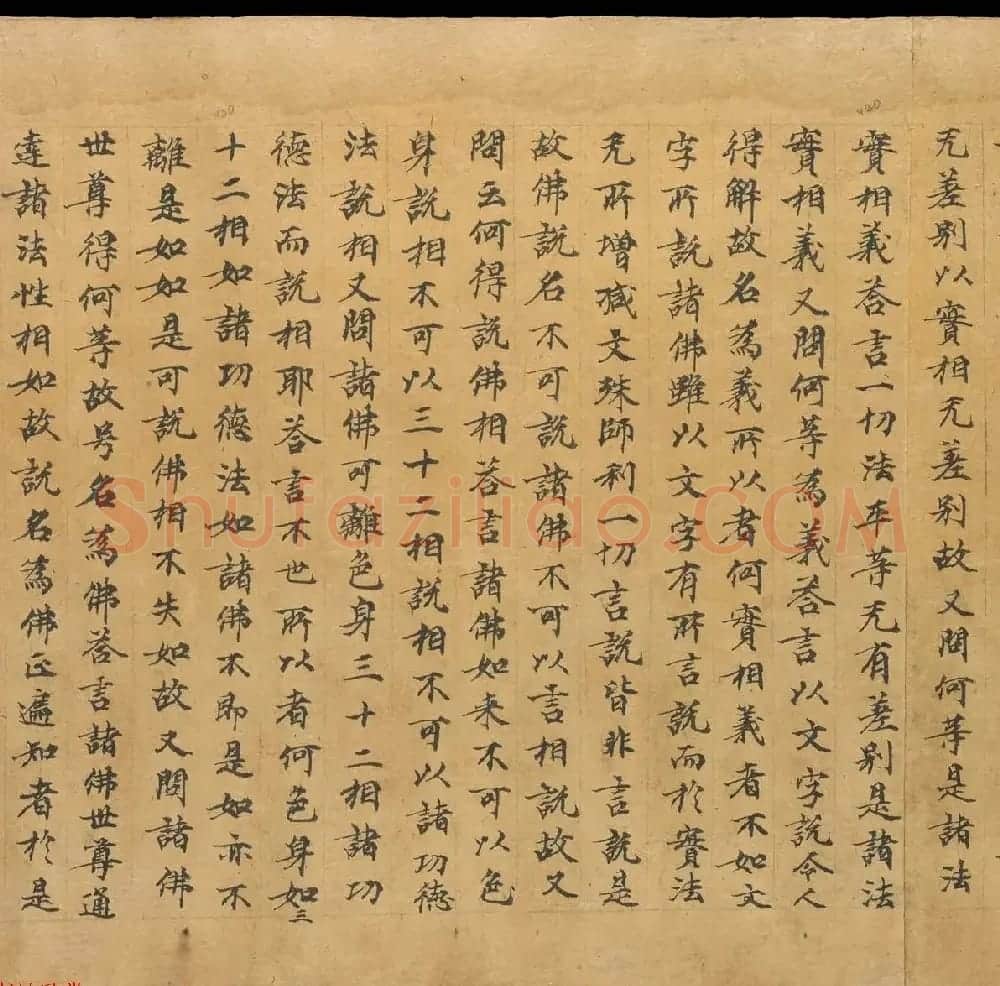 无差别以實相无差别故又問何䒭是諸法
實相義荅言一切法平䒭无有差别是諸法
實相義又問何䒭為義荅言以文字說令人
得解故名為義所以者何實相義者不如文
字所說諸佛雖以文字有所言說而於實法
无所增減文殊師利一切言說皆非言說是
故佛說名不可說諸佛不可以言相說故又
問云何得說佛相荅言諸佛如来不可以色
身說相不可以三十二相說相不可以諸功德
法說相又問諸佛可離色身三十二相諸功
德法而說相耶荅言不也所以者何色身如三
十二相如諸功德法如諸佛不即是如亦不
離是如如是可說佛相不失如故又問諸佛
世尊得何䒭故号名為佛荅言諸佛世尊通
達諸法性相如故說名為佛正遍知者於是
Shufaziliao.COM